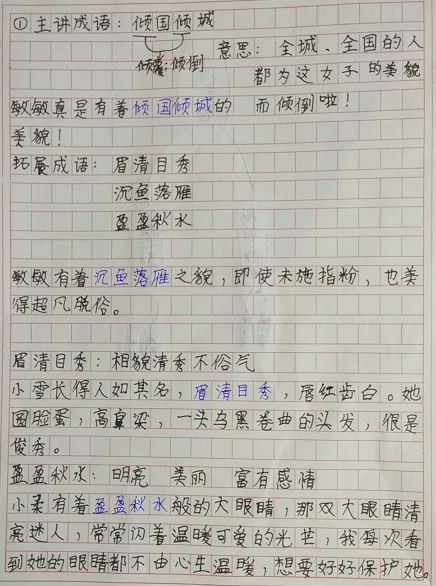 ① 主讲成语：倾国倾城
意思：全城、全国的人
倾倒
都为这女子的美貌
敏敏真是有着倾国倾城的
而倾倒啦！
美貌！
拓展成语：眉清目秀
沉鱼落雁
盈盈秋水
敏敏有着沉鱼落雁之貌，即使未施指粉，也美
得超凡脱俗。
眉清目秀：相貌清秀不俗气
小雪长得人如其名，眉清目秀，唇红齿白。她
圆脸蛋，高鼻梁，一头乌黑卷曲的头发，很是
俊秀。
盈盈秋水：明亮 美丽 富有感情
小柔有着盈盈秋水般的大眼睛，那双大眼睛清
亮迷人，常常闪着温暖可爱的光芒，我每次看
到她的眼睛都不由心生温暖，想要好好保护她。